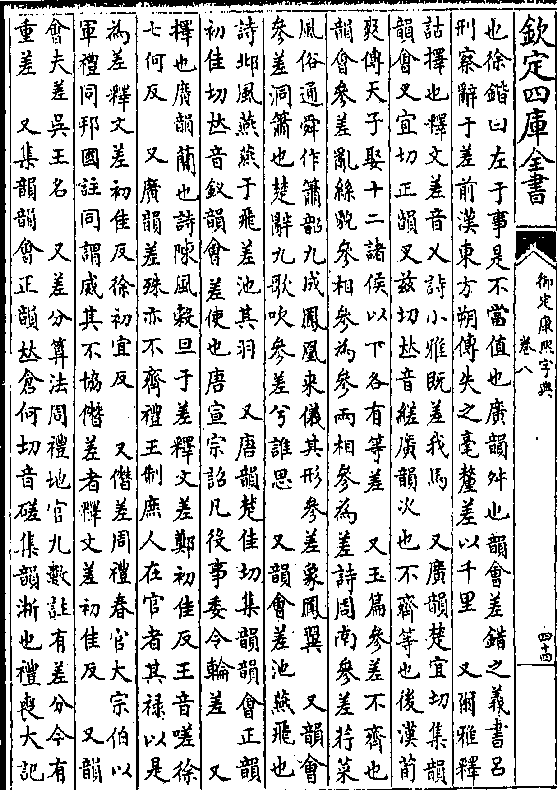 欽定四庫全書
御定康熙字典
卷八
四十四
也徐鍇曰左于事是不當值也廣韻舛也韻會差錯之義書呂
刑察辭于差前漢東方朔傳失之毫釐差以千里　又爾雅釋
詁擇也釋文差音乂詩小雅既差我馬　又廣韻楚宜切集韻
韻會叉宜切正韻叉兹切𠀤音縒廣韻次也不齊等也後漢荀
爽傳天子娶十二諸侯以下各有等差　又玉篇參差不齊也
韻會參差亂絲貌參相參為參兩相參為差詩周南參差荇菜
風俗通舜作簫韶九成鳳凰來儀其形參差象鳳翼　又韻會
參差洞簫也楚辭九歌吹參差兮誰思　又韻會差池燕飛也
詩邶風燕燕于飛差池其羽　又唐韻楚佳切集韻韻會正韻
初佳切𠀤音釵韻會差使也唐宣宗詔凡役事委令輪差　又
擇也廣韻蕳也詩陳風穀旦于差釋文差鄭初佳反王音嗟徐
七何反　又廣韻差殊亦不齊禮王制庶人在官者其禄以是
為差釋文差初佳反徐初宜反　又僭差周禮春官大宗伯以
軍禮同邦國註同謂威其不協僭差者釋文差初佳反　又韻
會夫差吳王名　又差分算法周禮地官九數註有差分今有
重差　又集韻韻會正韻𠀤倉何切音磋集韻淅也禮喪大記